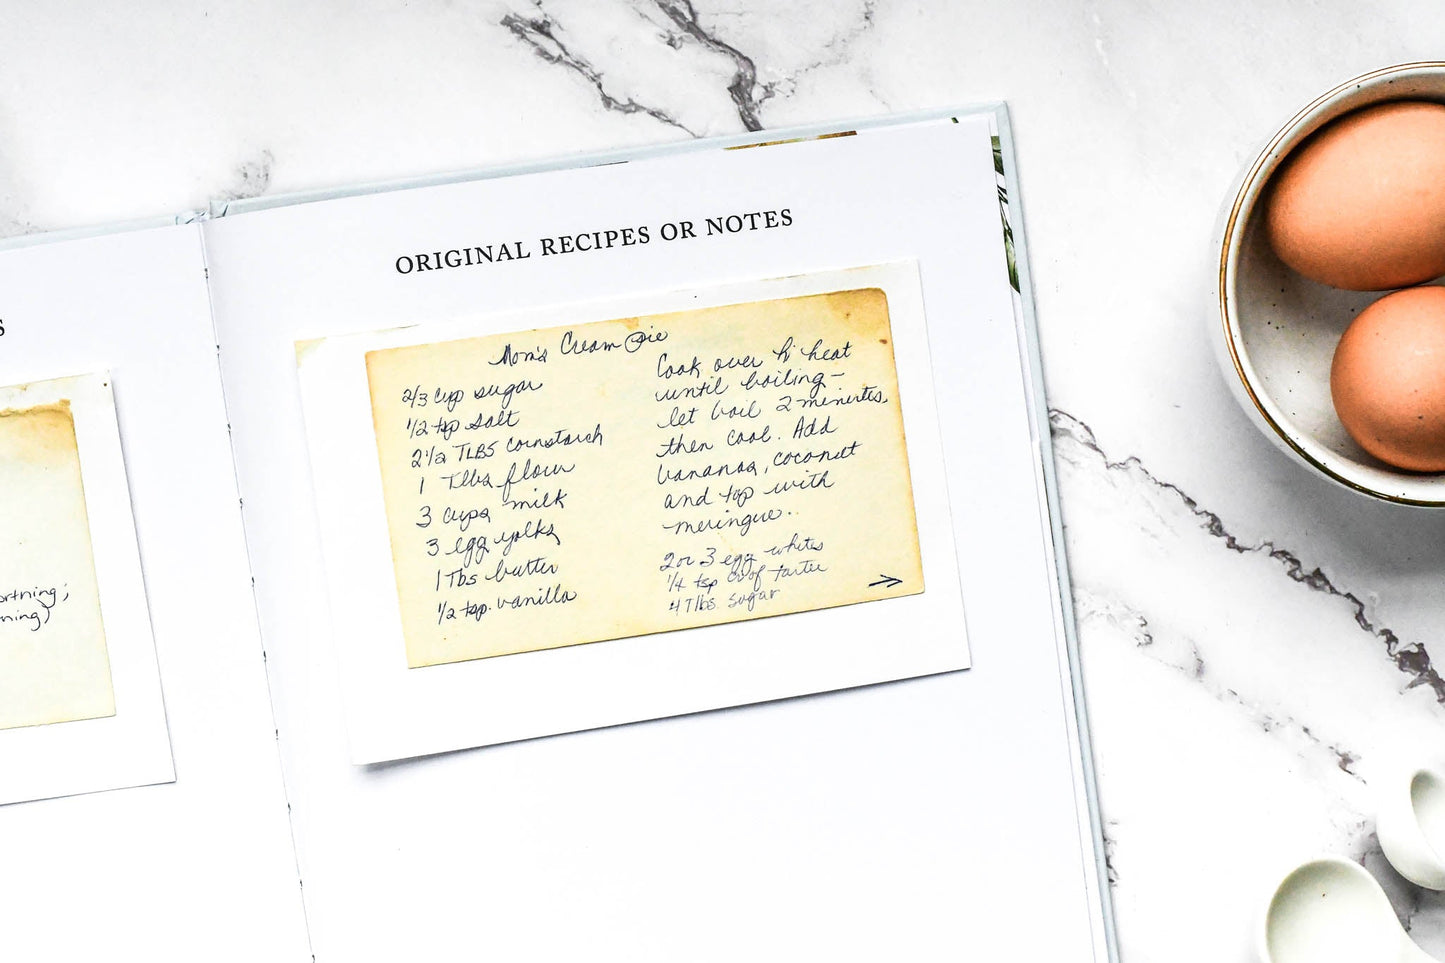 S
ortning;
ning)
ORIGINAL RECIPES OR NOTES
Mom's Cream Pie
2/3 cup sugar
1/2 tsp salt
2 1/2 TLBS cornstarch
1 Tlbs flour
3 cups milk
3 egg yolks
1 Tbs butter
1/2 tsp. vanilla
Cook over hi heat
until boiling –
let boil 2 minutes,
then cool. Add
bananas, coconut
and top with
meringue.
2 or 3 egg whites
1/4 tsp cr of tarter
4 Tlbs. sugar